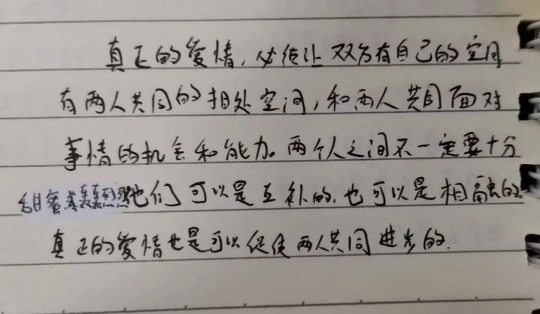 真正的爱情，必须让双方有自己的空间
有两人共同的相处空间，和两人共同面对
事情的机会和能力。两个人之间不一定要十分
甜蜜轰轰烈烈他们可以是互补的，也可以是相融的。
真正的爱情也是可以促使两人共同进步的.